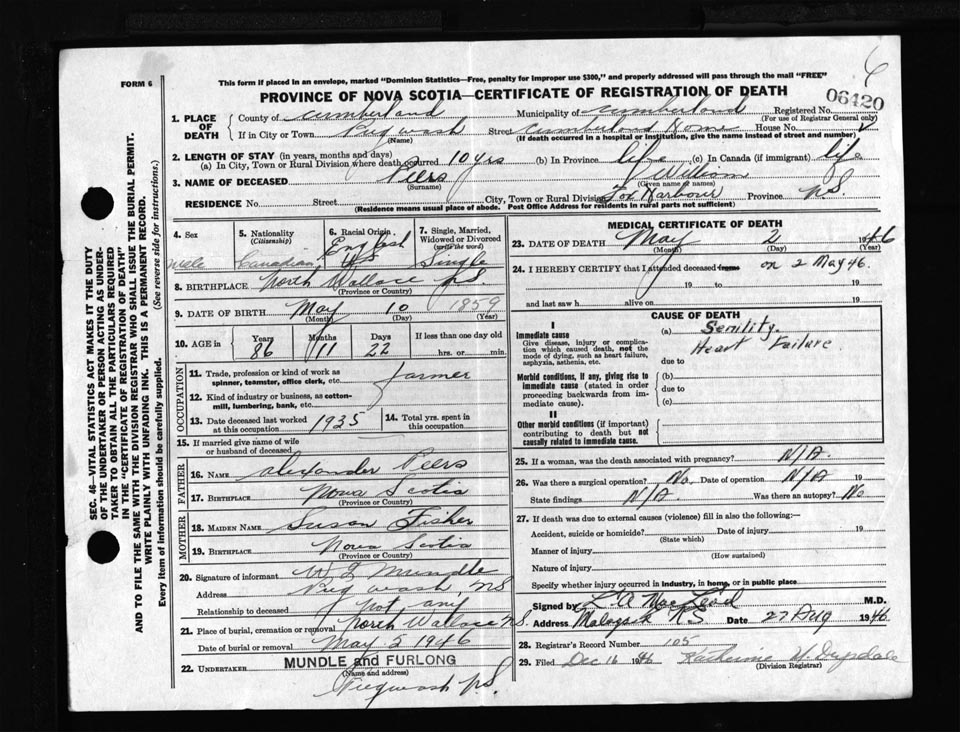 6
FORM 6
This form if placed in an envelope, marked "Dominion Statistics—Free, penalty for improper use $300," and properly addressed will pass through the mail "FREE"
PROVINCE OF NOVA SCOTIA—CERTIFICATE OF REGISTRATION OF DEATH
06420
1. PLACE OF DEATH
County of Cumberland Municipality of Cumberland Registered No.
(For use of Registrar General only)
If in City or Town Pugwash Street Cumberland Home House No.
(Name) (If death occurred in a hospital or institution, give the name instead of street and number)
2. LENGTH OF STAY (in years, months and days)
(a) In City, Town or Rural Division where death occurred 10 yrs (b) In Province life (c) In Canada (if immigrant) life
3. NAME OF DECEASED Peers William
(Surname) (Given name or names)
RESIDENCE No. Street City, Town or Rural Division Fox Harbour Province N.S.
(Residence means usual place of abode. Post Office Address for residents in rural parts not sufficient)
SEC. 46—VITAL STATISTICS ACT MAKES IT THE DUTY
OF THE UNDERTAKER OR PERSON ACTING AS UNDER-
TAKER TO OBTAIN ALL THE PARTICULARS REQUIRED
IN THE "CERTIFICATE OF REGISTRATION OF DEATH"
AND TO FILE THE SAME WITH THE DIVISION REGISTRAR WHO SHALL ISSUE THE BURIAL PERMIT.
WRITE PLAINLY WITH UNFADING INK. THIS IS A PERMANENT RECORD.
Every item of information should be carefully supplied. (See reverse side for instructions.)
4. Sex 5. Nationality (Citizenship) 6. Racial Origin 7. Single, Married, Widowed or Divorced (write the word)
Male Canadian English Single
8. BIRTHPLACE North Wallace N.S.
(Province or Country)
9. DATE OF BIRTH May 10 1859
(Month) (Day) (Year)
10. AGE in Years Months Days If less than one day old
86 11 22 hrs. or min.
OCCUPATION
11. Trade, profession or kind of work as spinner, teamster, office clerk, etc. farmer
12. Kind of industry or business, as cotton-mill, lumbering, bank, etc.
13. Date deceased last worked at this occupation 1935 14. Total yrs. spent in this occupation
15. If married give name of wife or husband of deceased
FATHER
16. NAME Alexander Peers
17. BIRTHPLACE Nova Scotia
(Province or Country)
MOTHER
18. MAIDEN NAME Susan Fisher
19. BIRTHPLACE Nova Scotia
(Province or Country)
20. Signature of informant Mundle
Address Pugwash, N.S.
Relationship to deceased not any
21. Place of burial, cremation or removal North Wallace N.S.
Date of burial or removal May 5 1946
22. UNDERTAKER MUNDLE and FURLONG
Pugwash N.S.
MEDICAL CERTIFICATE OF DEATH
23. DATE OF DEATH May 2 1946
(Month) (Day) (Year)
24. I HEREBY CERTIFY that I attended deceased from on 2 May 46.
19 to 19
and last saw h alive on 19
CAUSE OF DEATH
I
Immediate cause
Give disease, injury or complication which caused death, not the mode of dying, such as heart failure, asphyxia, asthenia, etc.
(a) Senility.
Heart Failure.
due to
Morbid conditions, if any, giving rise to immediate cause (stated in order proceeding backwards from immediate cause).
(b)
due to
(c)
II
Other morbid conditions (if important) contributing to death but not causally related to immediate cause.
25. If a woman, was the death associated with pregnancy? N/A.
26. Was there a surgical operation? No. Date of operation N/A 19
State findings N/A Was there an autopsy? No
27. If death was due to external causes (violence) fill in also the following:
Accident, suicide or homicide? Date of injury 19
(State which)
Manner of injury
(How sustained)
Nature of injury
Specify whether injury occurred in industry, in home, or in public place
Signed by MacLeod M.D.
Address Malagash N.S Date 27 Aug 1946
28. Registrar's Record Number 105
29. Filed Dec 16 1946 Katherine M. Drysdale
(Division Registrar)